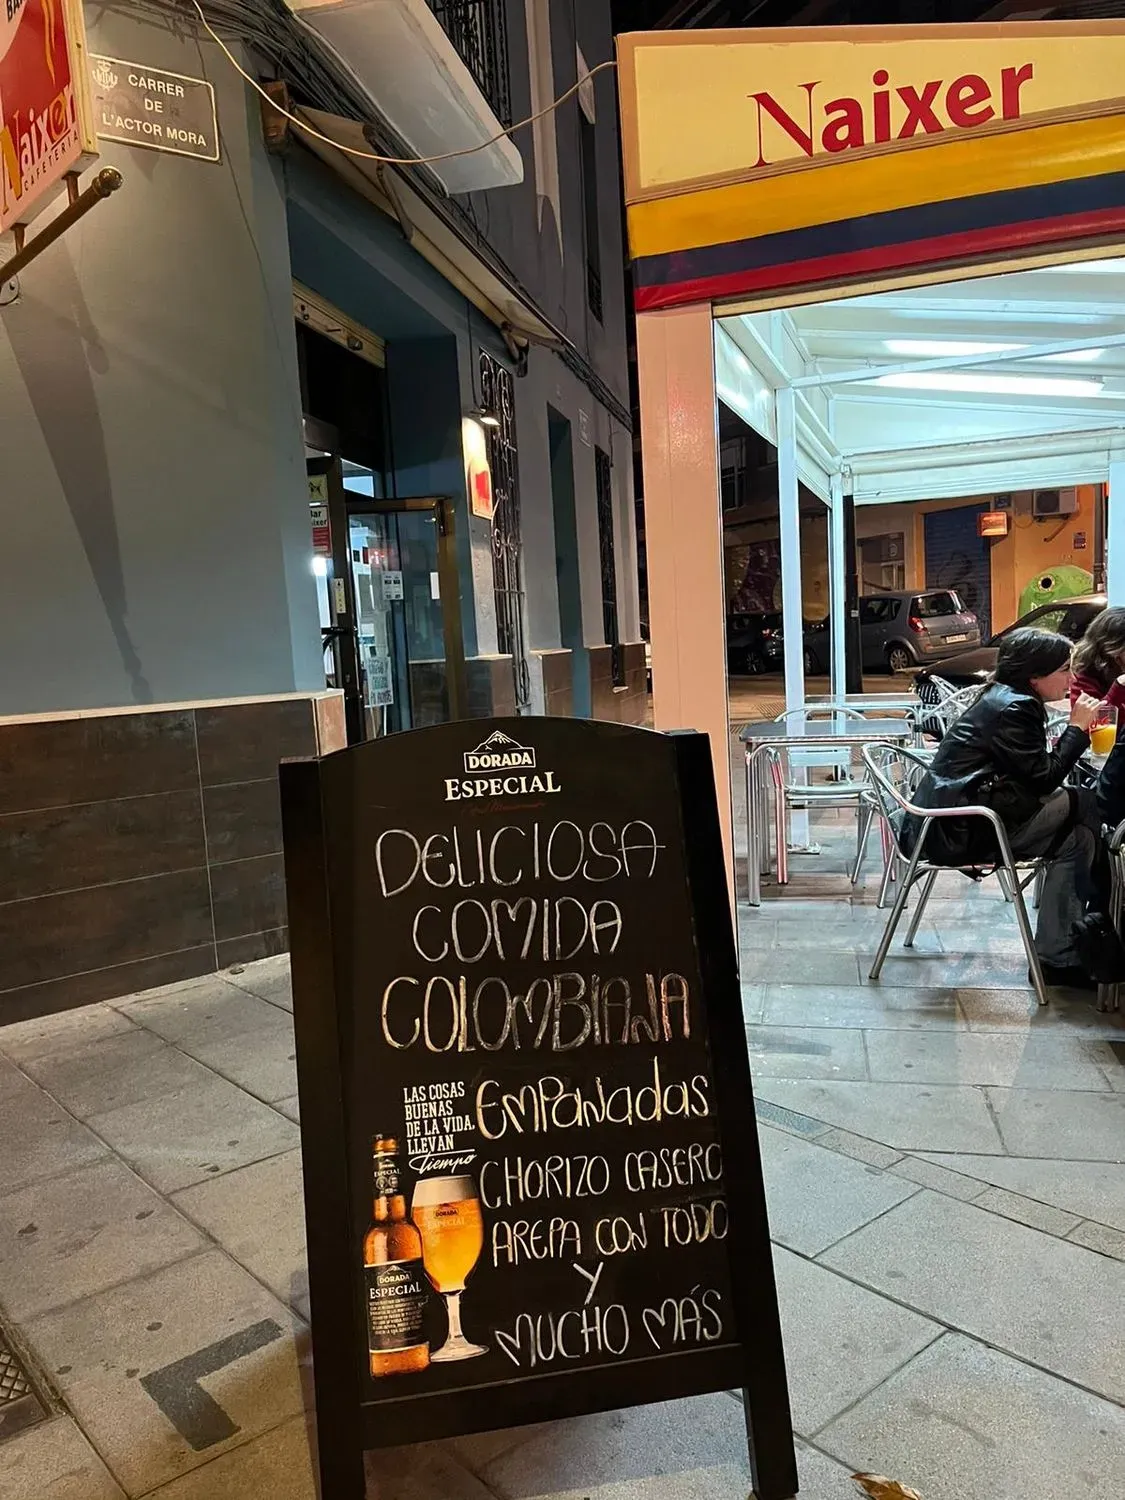 Naixer
CAFETERIA
CARRER
DE
L'ACTOR MORA
Naixer
Bar
DORADA
ESPECIAL
DELICIOSA
COMIDA
COLOMBIANA
EMPANADAS
CHORIZO CASERO
AREPA CON TODO
Y
MUCHO MÁS
LAS COSAS
BUENAS
DE LA VIDA,
LLEVAN
Tiempo
ESPECIAL
DORADA
ESPECIAL
DORADA
ESPECIAL